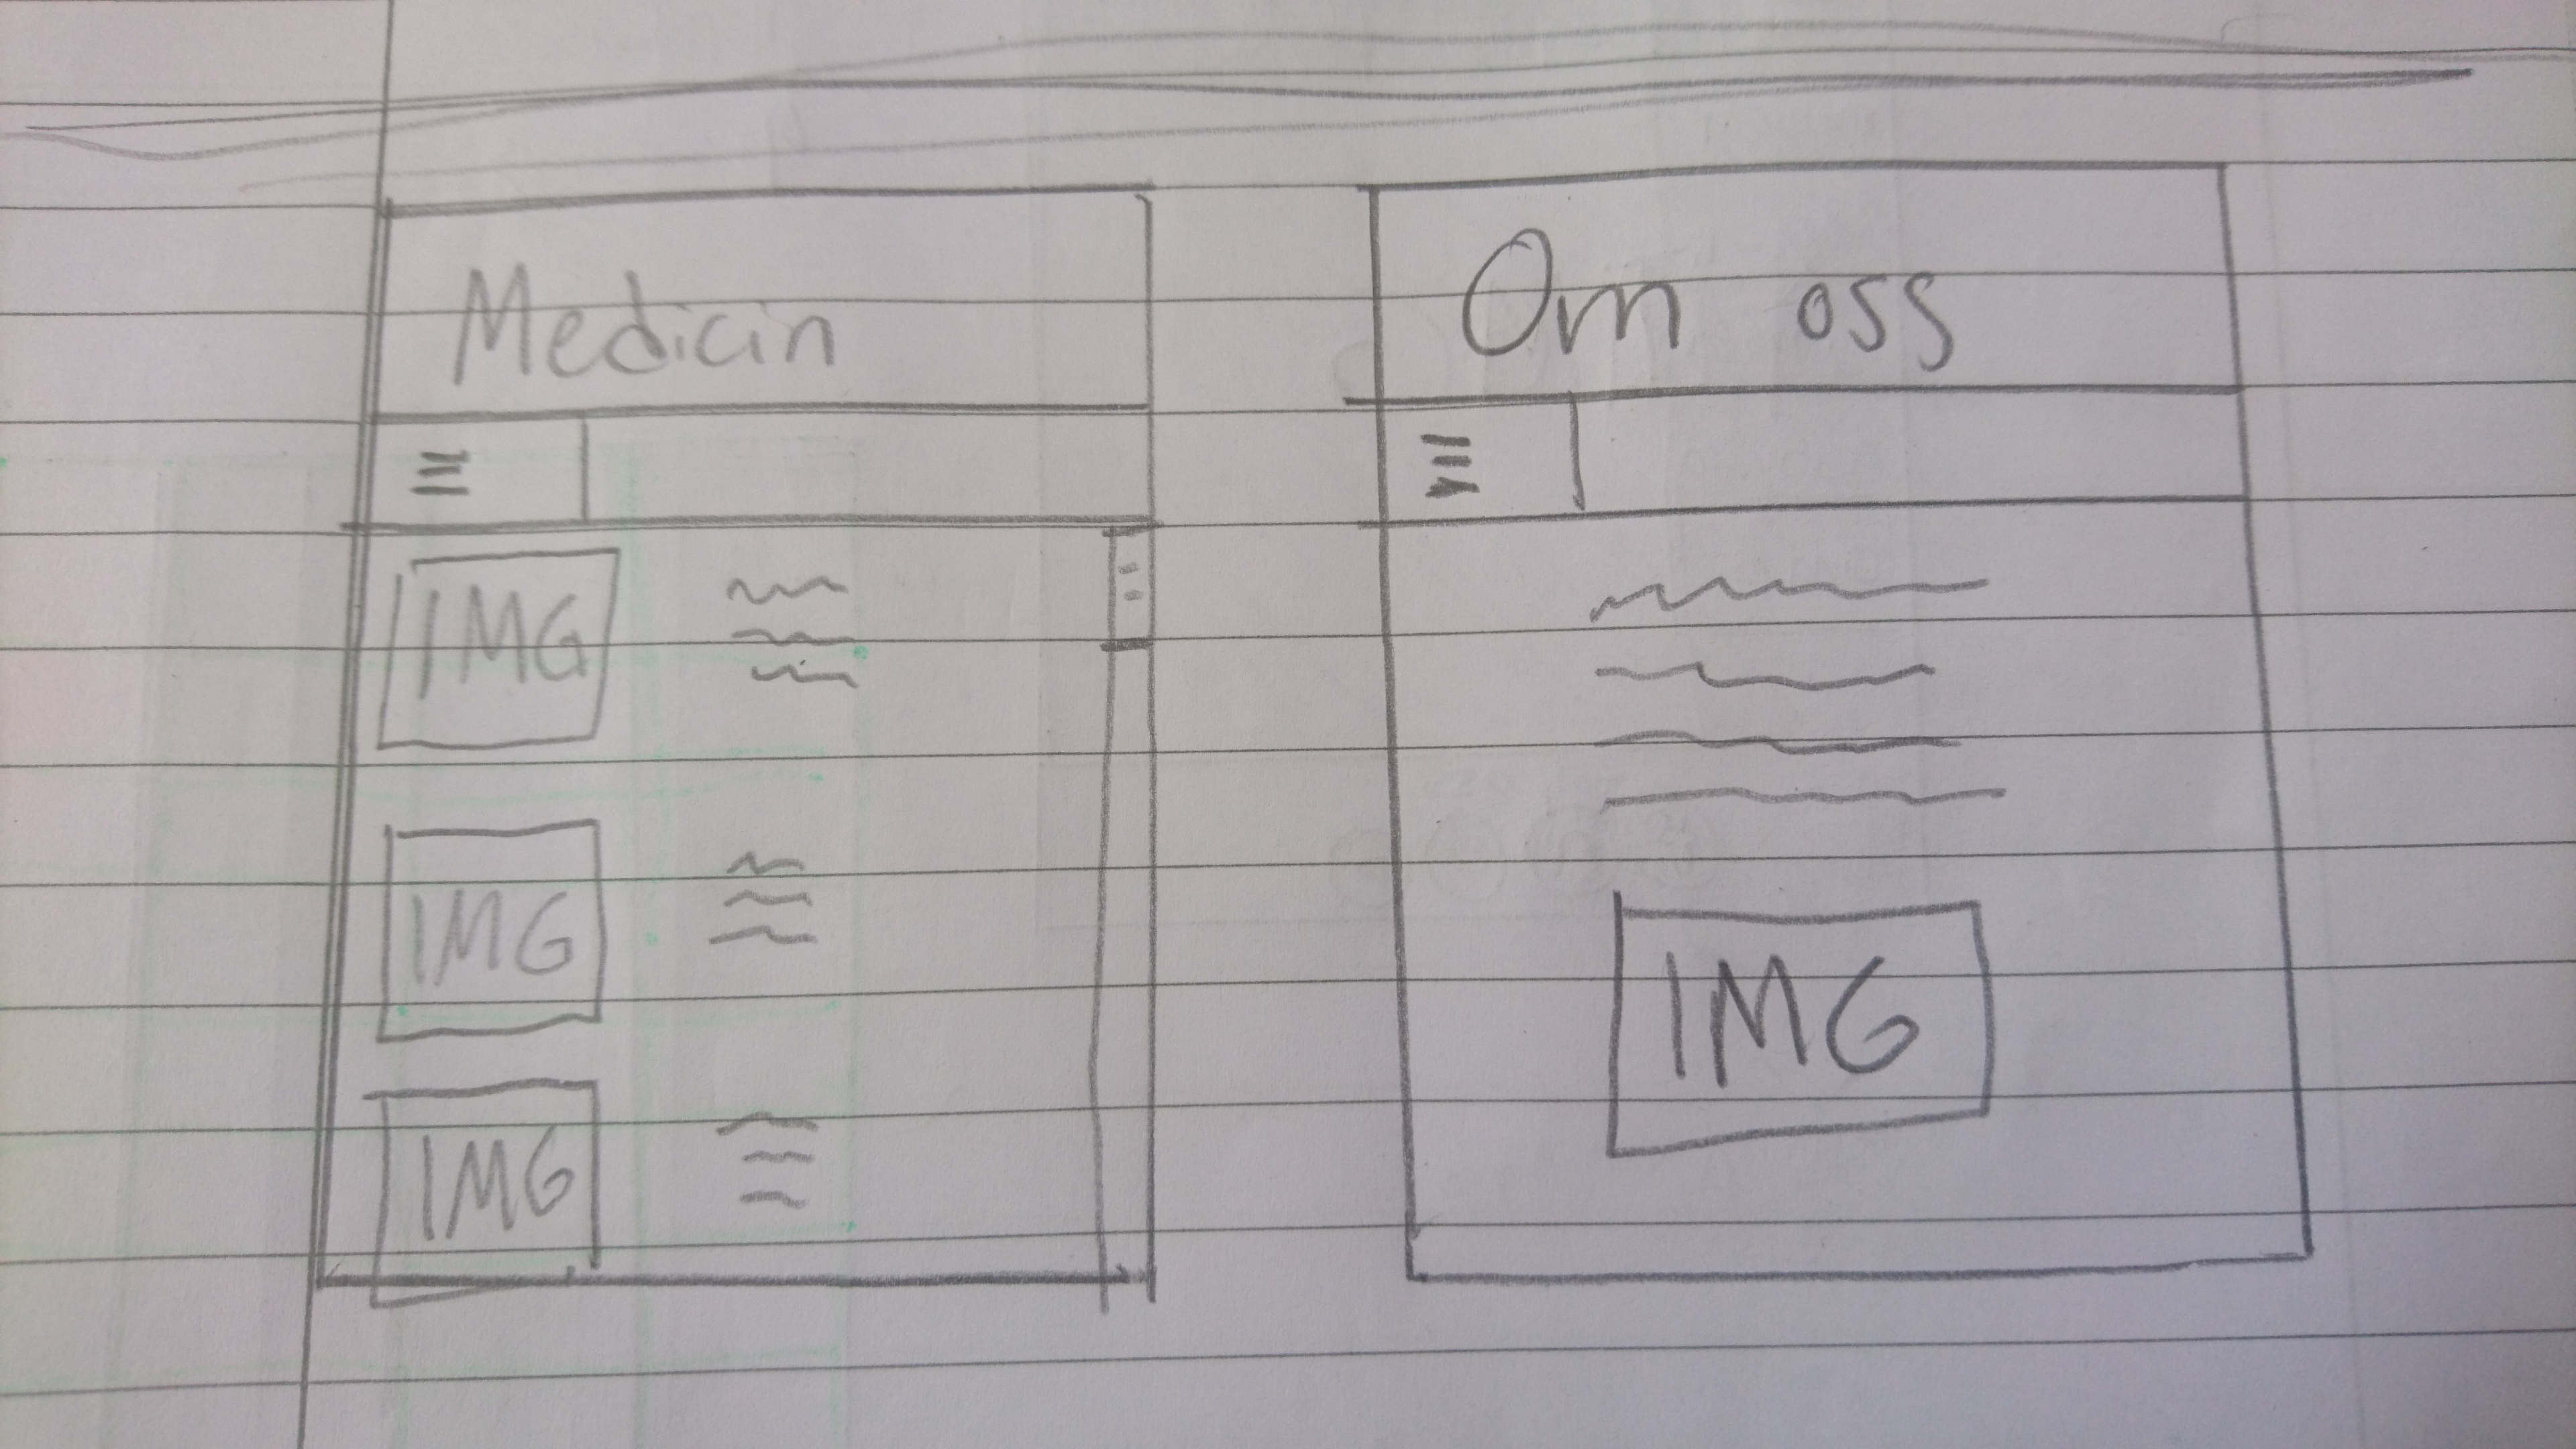 Medicin
IMG
IMG
IMG
Om oss
IMG